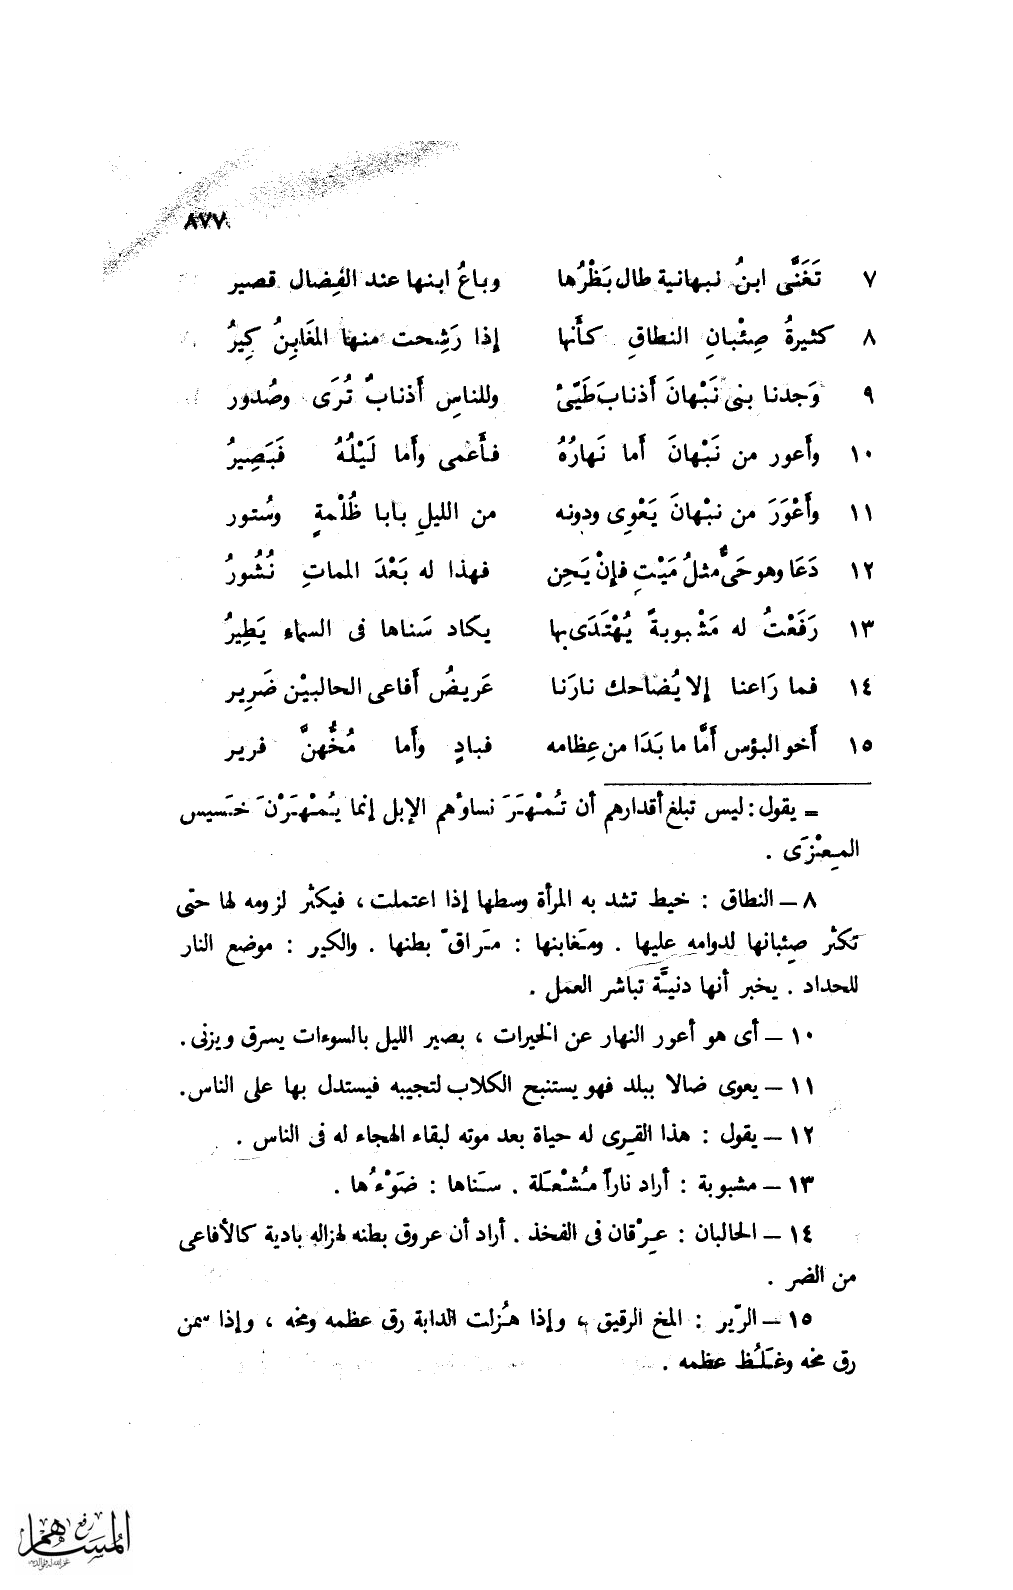 ٨٧٧
٧ تَغَنَّى ابنُ نبهانية طال بَظْرُها وباعُ ابنها عند الفِضال قصير
٨ كثيرةُ صِئْبانِ النطاقِ كأَنها إذا رَشِحت منها المَغَابِنُ كِيرُ
٩ وَجدنا بنى نَبْهانَ أذنابَ طَيّئْ وللناسِ أذنابٌ تُرَى وصُدور
١٠ وأعور من نَبْهانَ أما نَهارُهُ فأَعمى وأَما لَيْلُهُ فَبَصِيرُ
١١ وأَعْوَرَ من نبْهانَ يَعْوِى ودونه من الليلِ بابا ظُلْمةٍ وسُتور
١٢ دَعَا وهو حَىٌّ مثلُ مَيْتٍ فإنْ يَحِن فهذا له بَعْدَ المماتِ نُشُورُ
١٣ رَفَعْتُ له مَشْبوبةً يُهْتَدَى بها يكاد سَناها فى السماء يَطِيرُ
١٤ فما رَاعنا إلا يُضاحك نارَنا عَريضُ أَفاعى الحالبيْن ضَرِير
١٥ أَخو البؤس أَمَّا ما بَدَا من عِظامه فبادٍ وأَما مُخُّهنَّ فرير
= يقول : ليس تبلغ أقدارهم أن تُمْهَرَ نساؤهم الإبل إنما يُمْهَرْنَ خَسيس
المِعْزَى .
٨ – النطاق : خيط تشد به المرأة وسطها إذا اعتملت ، فيكثر لزومه لها حتى
تكثر صِئبانها لدوامه عليها . ومَغابنها : مَراقّ بطنها . والكير : موضع النار
للحداد . يخبر أنها دنيّة تباشر العمل .
١٠ – أى هو أعور النهار عن الخيرات ، بصير الليل بالسوءات يسرق ويزنى .
١١ – يعوى ضالا ببلد فهو يستنبح الكلاب لتجيبه فيستدل بها على الناس .
١٢ – يقول : هذا القِرى له حياة بعد موته لبقاء الهجاء له فى الناس .
١٣ – مشبوبة : أراد ناراً مُشْعَلة . سَناها : ضَوْءُها .
١٤ – الحالبان : عِرْقان فى الفخذ . أراد أن عروق بطنه لهزاله بادية كالأفاعى
من الضر .
١٥ – الرّير : المخ الرقيق ، وإذا هُزلت الدابة رق عظمه ومخه ، وإذا سمن
رق مخه وغَلُظ عظمه .
رفع
المساهم